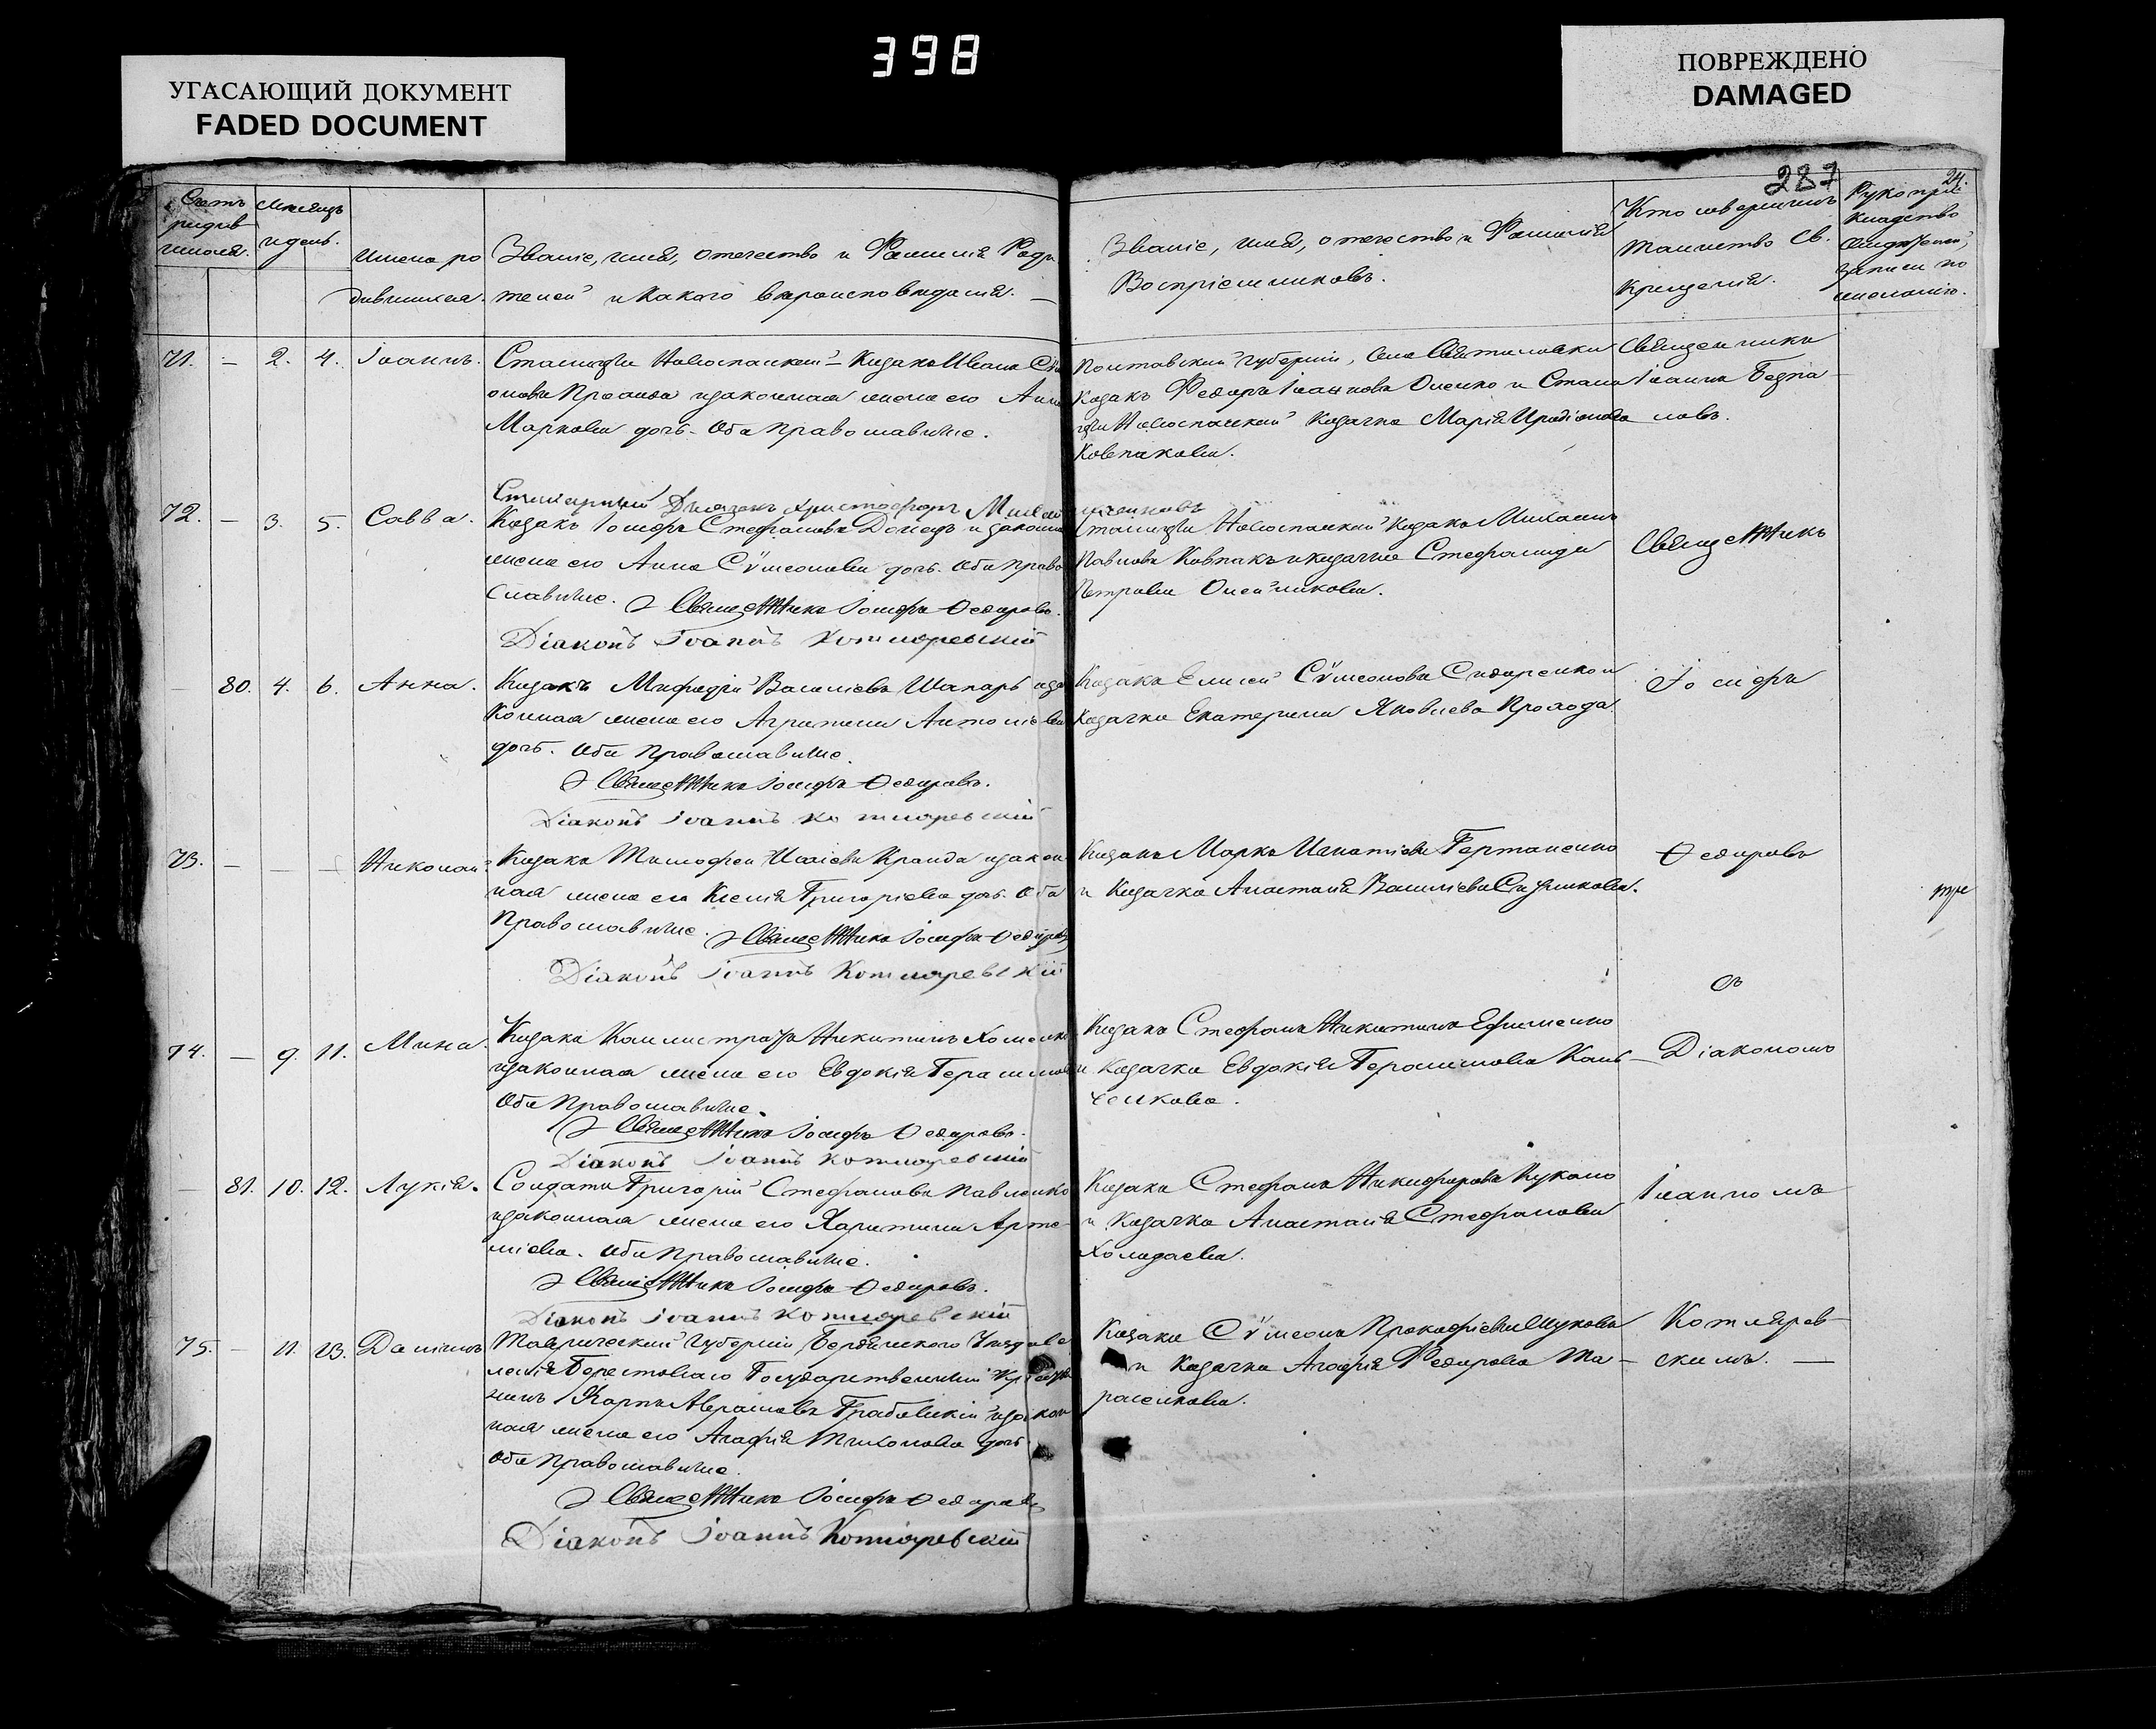 398
УГАСАЮЩИЙ ДОКУМЕНТ
FADED DOCUMENT
ПОВРЕЖДЕНО
DAMAGED
287
24.
Счетъ родившихся.
Мѣсяцъ и день.
Имена родившихся.
Званіе, имя, отечество и Фамилія Роди-
телей и какого вѣроисповѣданія. —
Званіе, имя, отечество и Фамилія
Воспріемниковъ.
Кто совершилъ
таинство Св.
Крещенія.
Рукопри-
кладство
свидѣтелей
записи по
желанію.
71. — 2. 4. Іоаннъ.
Станицы Новоспаской Козакъ Иванъ
законная жена его Анна
Маркова дочь. Оба Православные.
Полтавской Губерніи, села
Козакъ Федоръ Івановъ Оленко и Стани-
цы Новоспаской Козачка Марія Иродіонова
Ковпакова.
Священникъ
Іоаннъ Бедра-
ловъ.
72. — 3. 5. Савва.
Дьячекъ Христофоръ
Козакъ Іосифъ Стефановъ Донецъ и законная
жена его Анна Сѵмеонова дочь. Оба Право-
славные. Священникъ Іосифъ Ѳедоровъ.
Діаконъ Іоаннъ Котляревскій
Станицы Новоспаской Козакъ Михаилъ
Павловъ Ковпакъ и козачка Стефанида
Петрова Олейникова.
Священникъ
80. 4. 6. Анна.
Козакъ Мефодій Василіевъ Шапарь и за-
конная жена его Агрипина Антоніева
дочь. Оба Православные.
Священникъ Іосифъ Ѳедоровъ.
Діаконъ Іоаннъ Котляревскій
Козакъ Елисей Сѵмеоновъ Сидоренко и
Козачка Екатерина Яковлева Прохода.
Іосифъ
73. — — — Николай
Козакъ Тимофей Исаіевъ Кранда и закон-
ная жена его Ксенія Григоріева дочь. Оба
Православные. Священникъ Іосифъ Ѳедоровъ
Діаконъ Іоаннъ Котляревскій
Козакъ Марко Игнатіевъ
и Козачка Анастасія Василіева
Ѳедоровъ
съ
74. — 9. 11. Мина.
Козакъ Каллистратъ Никитинъ Хоменко
и законная жена его Евдокія Герасимова
Оба Православные.
Священникъ Іосифъ Ѳедоровъ.
Діаконъ Іоаннъ Котляревскій
Козакъ Стефанъ Никитинъ Ефименко
и Козачка Евдокія Герасимова Каль-
ченкова.
Діакономъ
81. 10. 12. Лукія.
Солдатъ Григорій Стефановъ Павленко
и законная жена его Харитина Арте-
міева. Оба Православные.
Священникъ Іосифъ Ѳедоровъ.
Діаконъ Іоаннъ Котляревскій
Козакъ Стефанъ Никифоровъ
и Козачка Анастасія Стефанова
Холодаева.
Іоанномъ
75. — 11. 13. Даніилъ
Таврической Губерніи Бердянскаго Уѣзда се-
ленія Берестоваго Государственный Крестья-
нинъ Карпъ Аврамовъ Грабовскій и закон-
ная жена его Агафія Тихонова дочь
Оба Православные.
Священникъ Іосифъ Ѳедоровъ
Діаконъ Іоаннъ Котляревскій
Козакъ Сѵмеонъ Прокофіевъ Жуковъ
и Козачка Агафія Федорова Та-
расенкова.
Котлярев-
скимъ. —